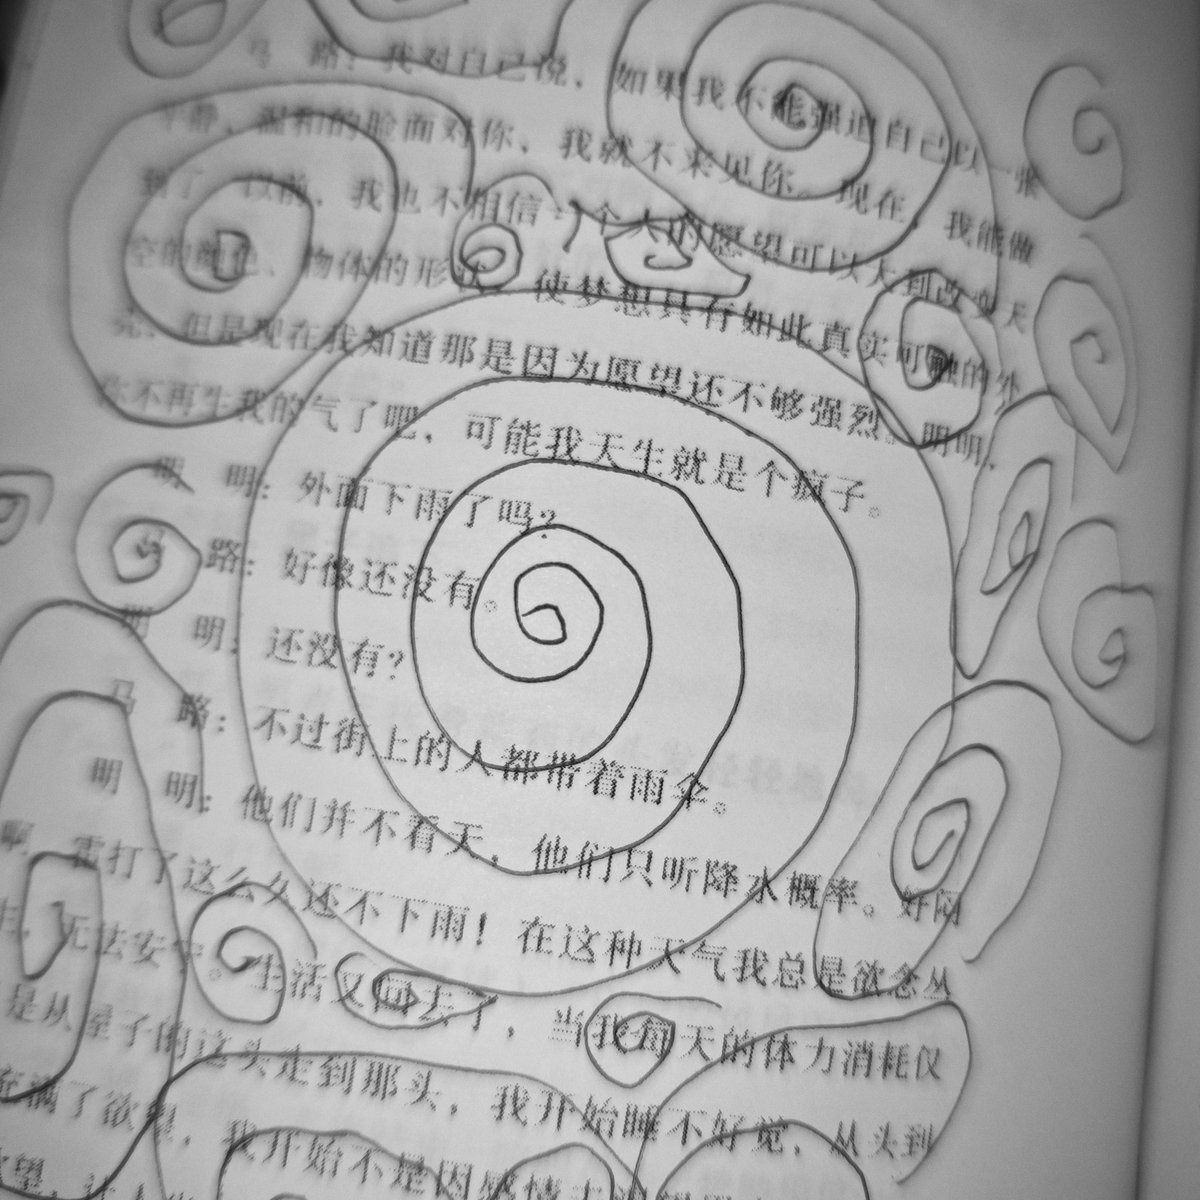 马 路：我对自己说，如果我不能强迫自己以一张
平静、温和的脸面对你，我就不来见你。现在，我能做
到了。以前，我也不相信一个人的愿望可以大到改变天
空的颜色、物体的形状，使梦想具有如此真实可触的外
壳，但是现在我知道那是因为愿望还不够强烈。明明，
你不再生我的气了吧，可能我天生就是个疯子。
明 明：外面下雨了吗？
马 路：好像还没有。
明 明：还没有？
马 路：不过街上的人都带着雨伞。
明 明：他们并不看天，他们只听降水概率。好闷
啊，雷打了这么久还不下雨！在这种天气我总是欲念丛
生，无法安宁。生活又回去了，当我每天的体力消耗仅
是从屋子的这头走到那头，我开始睡不好觉，从头到
充满了欲望，我开始不是因感情
欲望，